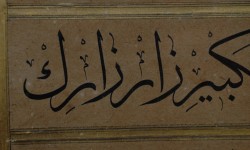 كبيرزارزارك